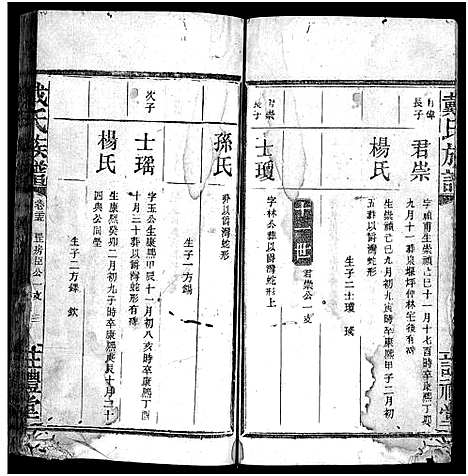 戴氏族譜
長子
君崇
字禎甫生崇禎己巳十一月十七酉時卒康熙丁卯
九月十一葬泉堰坪仲林宅後有碑
楊氏
生崇禎己巳九月初九寅時卒康熙甲子二月初
五葬以爵灣蛇形
生子二士瓊 瑤
十世
君崇公一支
君崇
長子
士瓊
字林公葬以爵灣蛇形上
孫氏
葬以爵灣蛇形
生子一方錫
次子
士瑤
字玉公生康熙甲辰十一月初八亥時卒康熙丁酉
十月二十葬以爵灣蛇形有碑
楊氏
生康熙癸卯二月初九子時卒康熙庚辰十月二十
四與公同塋
生子二方鏷 欽
戴氏族譜